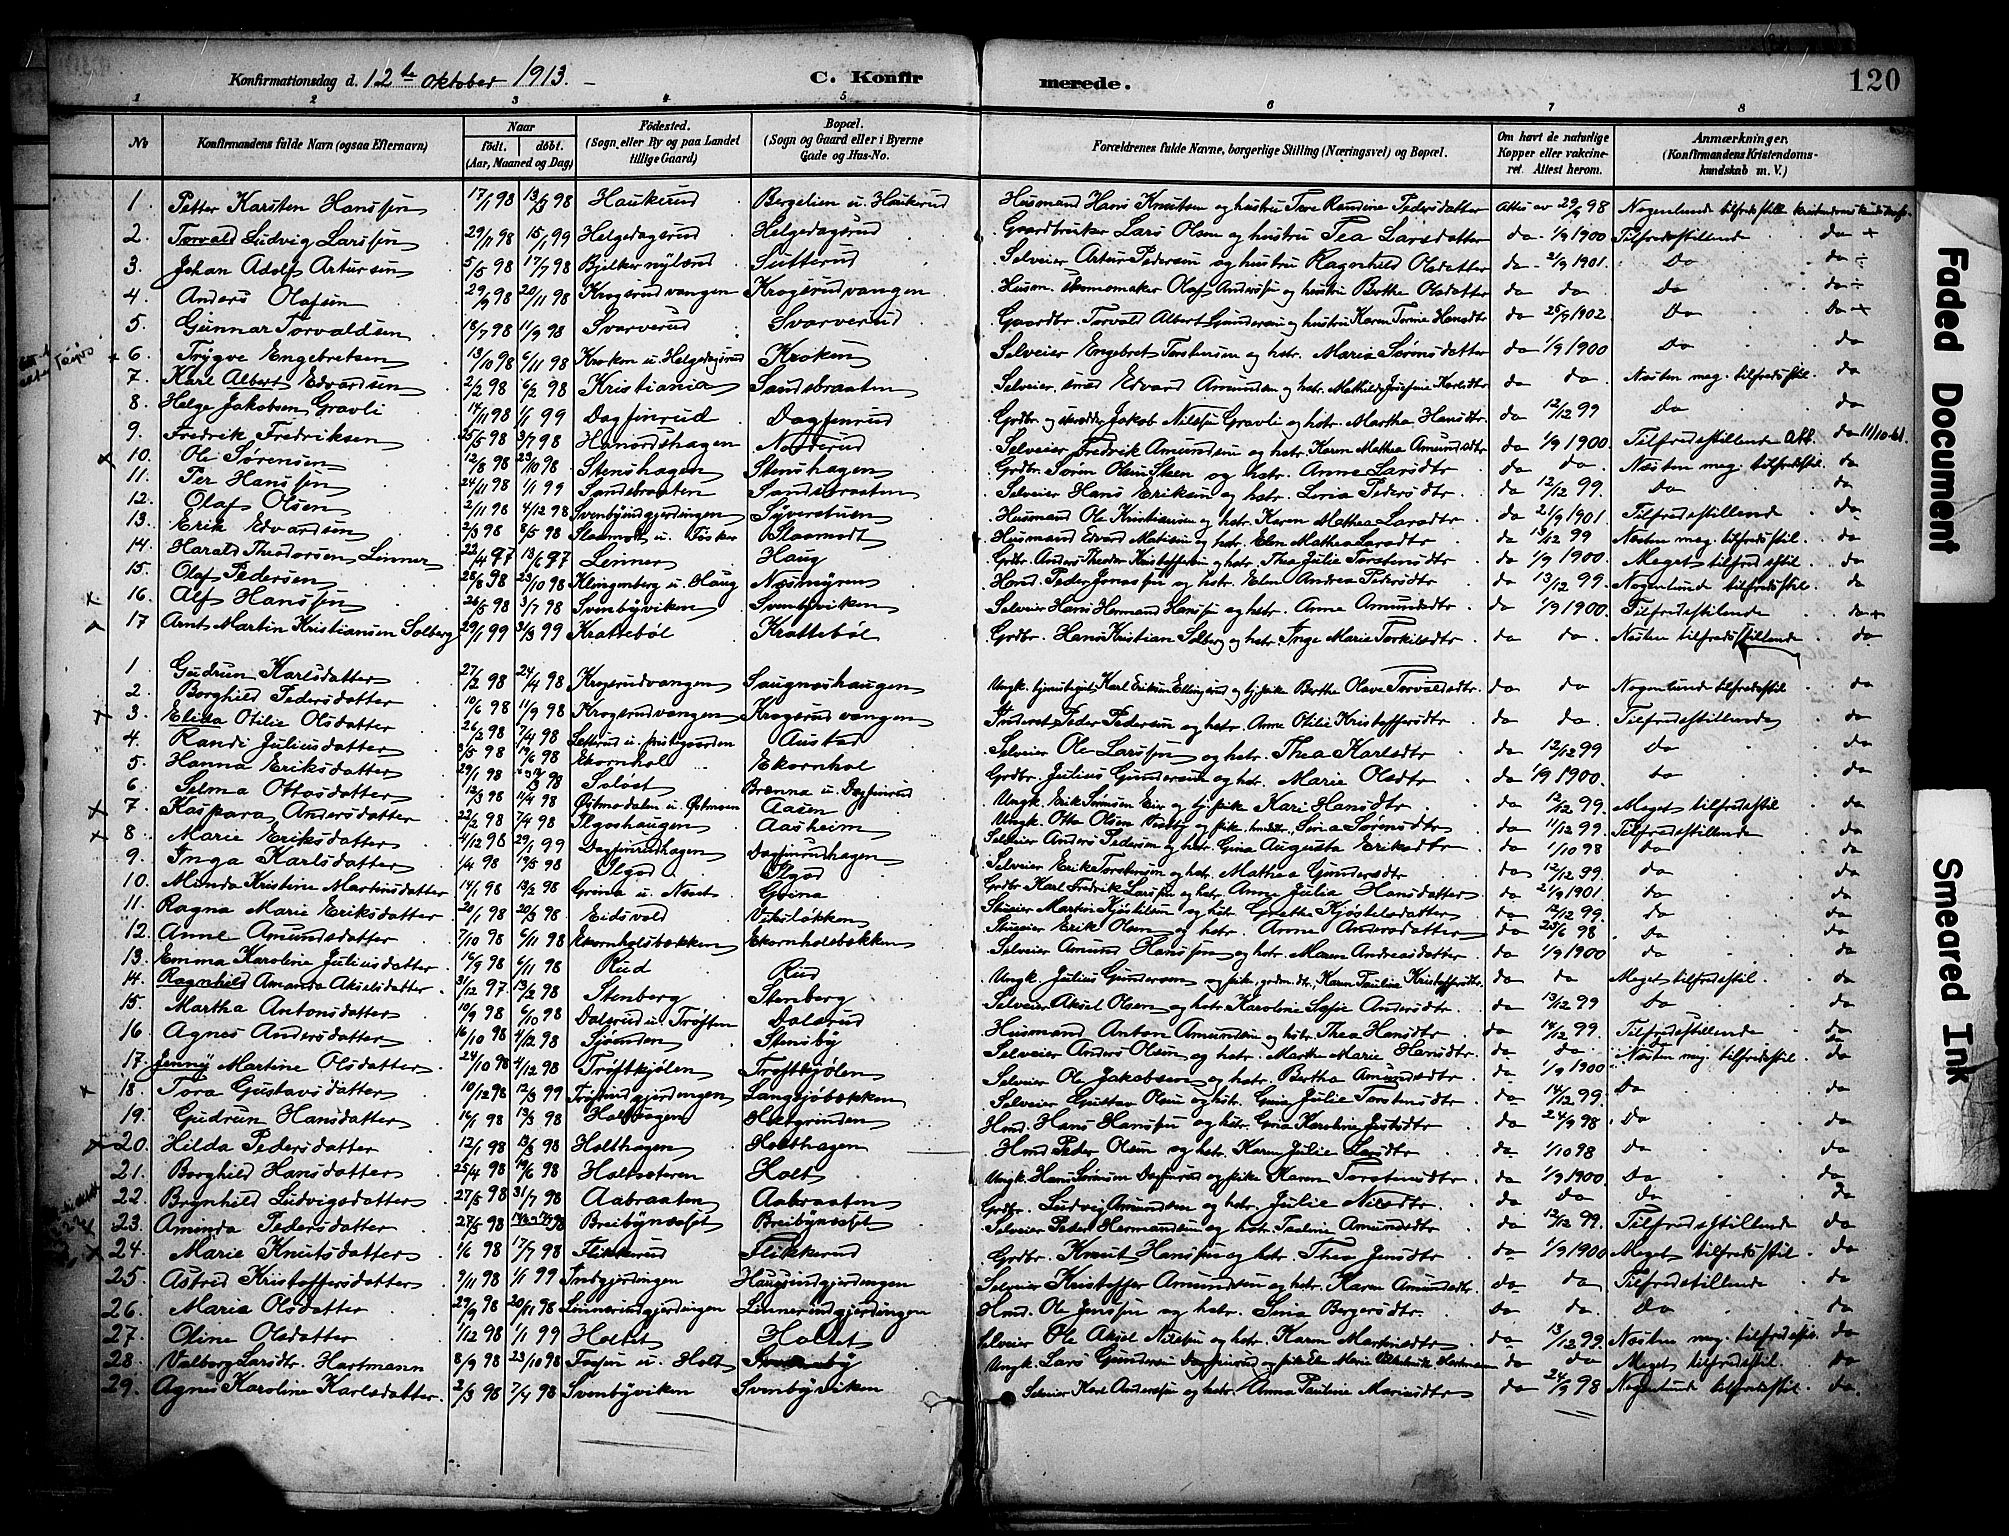 Konfirmationsdag d. 12te Oktober 1913. C. Konfirmerede. 120
1 2 3 4 5 6 7 8
No Konfirmandens fulde Navn (ogsaa Efternavn) Naar født. døbt. (Aar, Maaned og Dag) Födested. (Sogn eller By og paa Landet tillige Gaard) Bopæl. (Sogn og Gaard eller i Byerne Gade og Hus-No. Forældrenes fulde Navne, borgerlige Stilling (Næringsvei) og Bopæl. Om havt de naturlige Kopper eller vakcineret. Attest herom. Anmærkninger. (Konfirmandens Kristendomskundskab m. V.)
1. Petter Karsten Hanssøn 17/1 98 13/3 98 Haukerud Bergelien u. Haukerud Husmand Hans Knutsen og hustru Tere Randine Pedersdatter Attes av 29/9 98 Nogenlunde tilfredsstill.
2. Torvald Ludvig Larssøn 29/11 98 15/1 99 Helgedagsrud Helgedagsrud Gaardbruker Lars Olsen og hustru Tea Larsdatter da 1/9 1900 Tilfredsstillende da
3. Johan Adolf Artursen 5/5 98 17/7 98 Sutterud Selveier Artur Pedersen og hustru Ragnhild Olsdatter da 2/9 1901. Do da
4. Anders Olafsen 29/9 98 20/11 98 Krogsrudvangen Krogsrudvangen Husm. skomaker Olaf Anderssøn og hustru Berthe Olsdatter da da Do da
5. Gunnar Torvaldsen 18/7 98 11/9 98 Svarverud Svarverud Gaardbr. Torvald Albert Gundersen og hustru Karen Torine Hansdtr da 25/9 1902 Do da
6. Trygve Engebretsen 13/10 98 6/11 98 Kroken u. Helgedagsrud Kroken Selveier Engebret Torstensen og hstr. Maria Sørensdatter da 1/9 1900 Do da
7. Karl Albert Edvardsen 2/2 98 6/2 98 Kristiania Sandsbraaten Selveier smed Edvard Amundsen og hstr. Mathilde Josefine Karlsdtr da da Næsten meg. tilfredsstil. da
8. Helge Jakobsen Gravli 14/11 98 1/1 99 Dagfinrud Dagfinrud Grdbr og skrædder Jakob Nilsen Gravli og hstr. Martha Hansdtr. da 12/12 99 Do da
9. Fredrik Fredriksen 25/5 98 3/7 98 Norderud Selveier Fredrik Amundsen og hstr Karen Mathea Amundsdtr da 1/9 1900 Tilfredsstillende Att. 11/10-61.
10. Ole Sørensen 12/8 98 23/10 98 Stenshagen Stenshagen Grdbr. Søren Olsen Steen og hstr. Anne Larsdtr. da da Næsten meg. tilfredsstil. da
11. Per Hanssøn 24/11 98 1/1 99 Sandsbraaten Sandsbraaten Selveier Hans Eriksen og hstr. Lovia Pedersdtr. da 12/12 99. Do da
12. Olaf Olsen 2/11 98 4/12 98 Svenbyindgjerdingen Syverstuen Husmand Ole Kristiansen og hstr. Karen Mathea Larsdtr. da 2/9 1901 Tilfredsstillende da
13. Erik Edvardsen 2/3 98 8/5 98 Slaamodt u. Fusker Slaamodt Husmand Edvard Matisen og hstr. Elen Mathea Larsdtr. da 13/12 99 Næsten meg. tilfredsstil. da
14. Harald Theodorsen Linner 22/4 97 13/6 97 Linner Haug Grdbr. Anders Theodor Kristoffersen og hstr. Thea Julie Torstensdtr. da 1/9 1900 Meget tilfredsstil da
15. Olaf Pedersen 28/8 98 23/10 98 Klingenberg u. Haug Næsmyren Hsmd. Peder Jonassøn og hstr. Elen Andrea Pedersdtr. da 13/12 99. Nogenlunde tilfredsstil. da
16. Alf Hanssøn 26/5 98 3/7 98 Svenbyviken Svenbyviken Selveier Hans Hermand Hanssøn og hstr. Anne Amundsdtr. da 1/9 1900. Tilfredsstillende da
17 Arnt Martin Kristiansen Solberg 29/1 99 3/3 99 Krattebøl Krattebøl Grdbr. Hans Kristian Solberg og hstr. Inge Marie Torkilsdtr. da da Næsten tilfredsstillende da
1. Gudrun Karlsdatter 27/2 98 24/4 98 Krogsrudvangen Saugnæshaugen Ungk. tjenestegut Karl Eriksen Ellingsrud og tj.pike Berthe Olave Torvaldsdtr. da da Nogenlunde tilfredsstil da
2. Borghild Pedersdatter 10/6 98 11/9 98 Krogsrudvangen Krogsrudvangen Inderst Peder Pedersen og hstr. Anne Otilie Kristoffersdtr da da. Tilfredsstillende da
3. Elida Otilie Olsdatter 26/2 98 7/4 98 Setterud u. prestegaarden Austad Selveier Ole Larssøn og hstr. Thea Karlsdtr da 12/12 99 Do da
4. Randi Juliusdatter 3/5 98 19/6 98 Ekornhol Ekornhol Grdbr. Julius Gundersen og hstr. Marie Olsdtr da 1/9 1900. Do da
5. Hanna Eriksdatter 29/1 98 Soløst Brænna u. Dagfinrud Ungk. Erik Sørensen Eier og tj.pike Kari Hansdtr. da 12/12 99. Meget tilfredsstil da
6. Selma Ottosdatter 12/3 98 11/4 98 Østmodalen u. Østmoen Aasen Ungk. Otto Olsen og pike Lina Sørensdtr da 11/12 99. Tilfredsstillende da
7. Kaspara Andersdatter 22/2 98 7/4 98 Ilgoshaugen Aasheim Selveier Anders Pedersen og hstr. Gina Augusta Eriksdtr da 1/10 98 Do da
8. Marie Eriksdatter 4/12 98 29/1 99 Dagfinrudhagen Dagfinrudhagen Selveier Erik Torstensen og hstr. Mathea Gundersdtr da 12/12 99. Do da
9. Inga Karlsdatter 1/4 98 19/5 98 Ilgod Ilgod Grdbr Karl Fredrik Larssøn og hstr. Anne Julia Hansdatter da 2/9 1901. Do da
10. Minda Kristine Martinsdatter 14/1 98 13/2 98 Grina u. Næset Grina Stueier Martin Kjøstelsen og hstr. Grethe Kjøstelsdatter da 12/12 99. Do da
11. Ragna Marie Eriksdatter 20/1 98 20/3 98 Eidsvold Viksløkken Stueier Erik Olsen og hstr. Anne Andersdatter da 25/6 98 Do da
12. Anne Amundsdatter 7/10 98 6/11 98 Ekornholsbækken Ekornholsbækken Selveier Amund Hanssøn og hstr. Maren Andreasdatter da 1/9 1900 Do da
13. Emma Karoline Juliusdatter 16/9 98 6/11 98 Rud Rud Ungk. Julius Gundersen og pike, grdm.dtr. Karen Pauline Kristoffersdtr. da da Meget tilfredsstil. da
14. Ragnhild Amanda Akselsdatter 31/12 97. 13/2 98 Stenberg Stenberg Selveier Aksel Olsen og hstr. Karoline Sofie Andersdtr da 13/12 99 Do da
15. Martha Antonsdatter 10/9 98 6/10 98 Dalsrud u. Trøften Dalsrud Husmand Anton Amundsen og hstr. Thea Hansdtr. da 14/12 99. Tilfredsstillende da
16. Agnes Andersdatter 16/10 98 4/12 98 Stensby Selveier Anders Olsen og hstr. Marthe Marie Hansdtr. da da Do da
17. Jenny Martine Olsdatter 24/10 98 4/12 98 Trøftkjølen Trøftkjølen Selveier Ole Jakobsen og hstr. Bertha Amundsdtr da 1/9 1900 Næsten meg. tilfredsstil. da
18. Tora Gustavsdatter 10/12 98 12/3 99 Langsjøbækken Selveier Gustav Olsen og hstr. Gina Julie Torstensdtr. da 14/12 99. Do da
19. Gudrun Hansdatter 16/1 98 13/3 98 Holthagen Holtgrinden Hsmd. Hans Hanssøn og hstr Gina Karoline Justdtr da 24/9 98 Do da
20. Hilda Pedersdatter 12/1 98 13/3 98 Holthagen Holthagen Hsmd Peder Olsen og hstr. Karen Julie Larsdtr da 1/10 98 Do da
21. Borghild Hansdatter 25/4 98 19/6 98 Holtsæteren Holt Ungk. Hans Sørensen Dagfinrud og pike Karen Torstensdtr. da 1/9 1900 Do da
22. Brynhild Ludvigsdatter 27/5 98 31/7 98 Aabraaten Aabraaten Grdbr. Ludvig Amundsen og hstr. Julie Nilsdtr. da da Do da
23. Aminda Pedersdatter 27/3 98 Breibynæset Breibynæset Selveier Peder Hermandsen og hstr. Pauline Amundsdtr. da 12/12 99. Tilfredsstillende da
24. Marie Knutsdatter 1/6 98 17/7 98 Flikkerud Flikkerud Grdbr. Knut Hanssøn og hstr. Thea Jensdtr da 1/9 1900 Meget tilfredsstil. da
25. Astrid Kristoffersdatter 9/11 98 1/1 99 Indgjerdingen Haugsindgjerdingen Selveier Kristoffer Amundsen og hstr. Karen Amundsdtr. da da Tilfredsstillende da
26. Maria Olsdatter 29/9 98 20/11 98 Linnerindgjerdingen Linnerindgjerdingen Hsmd. Ole Jenssøn og hstr. Lina Bergersdtr. da da. Do da
27. Oline Olsdatter 1/12 98 1/1 99 Holtet Holtet Selveier Ole Aksel Nilsen og hstr. Karen Martinsdtr. da 13/12 99. Næsten meg. tilfredsstil. da
28. Valborg Larsdtr. Hartmann 8/9 98 23/10 98 u. Holt Ungk. Lars Gundersen Dagfinrud og pike Hartmann da da Meget tilfredsstil. da
29. Agnes Karoline Karlsdatter 2/3 98 7/4 98 Svenbyviken Svenbyviken Selveier Karl Anderssøn og hstr. Anna Pauline Mariusdtr da 24/9 98 Nogenlund tilfredsstil. da
Faded Document
Smeared Ink